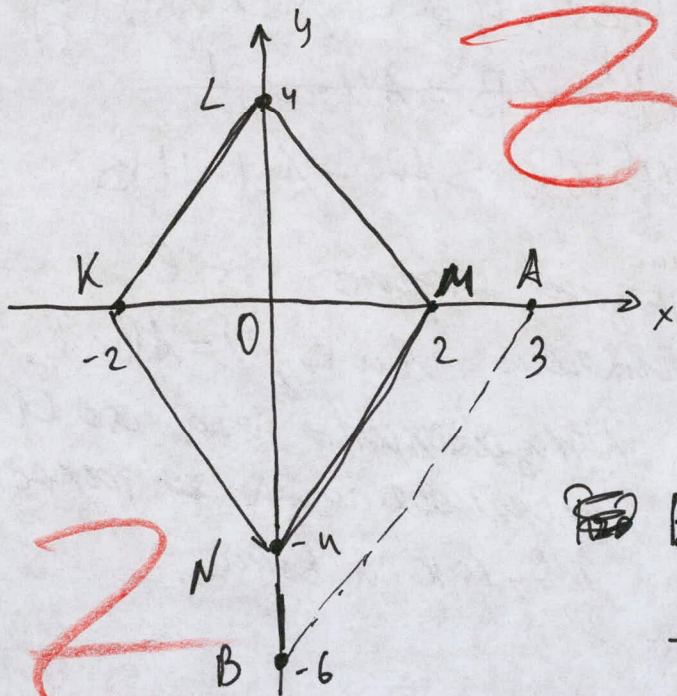 y
L 4
K M A
-2 O 2 3 x
N -4
B -6